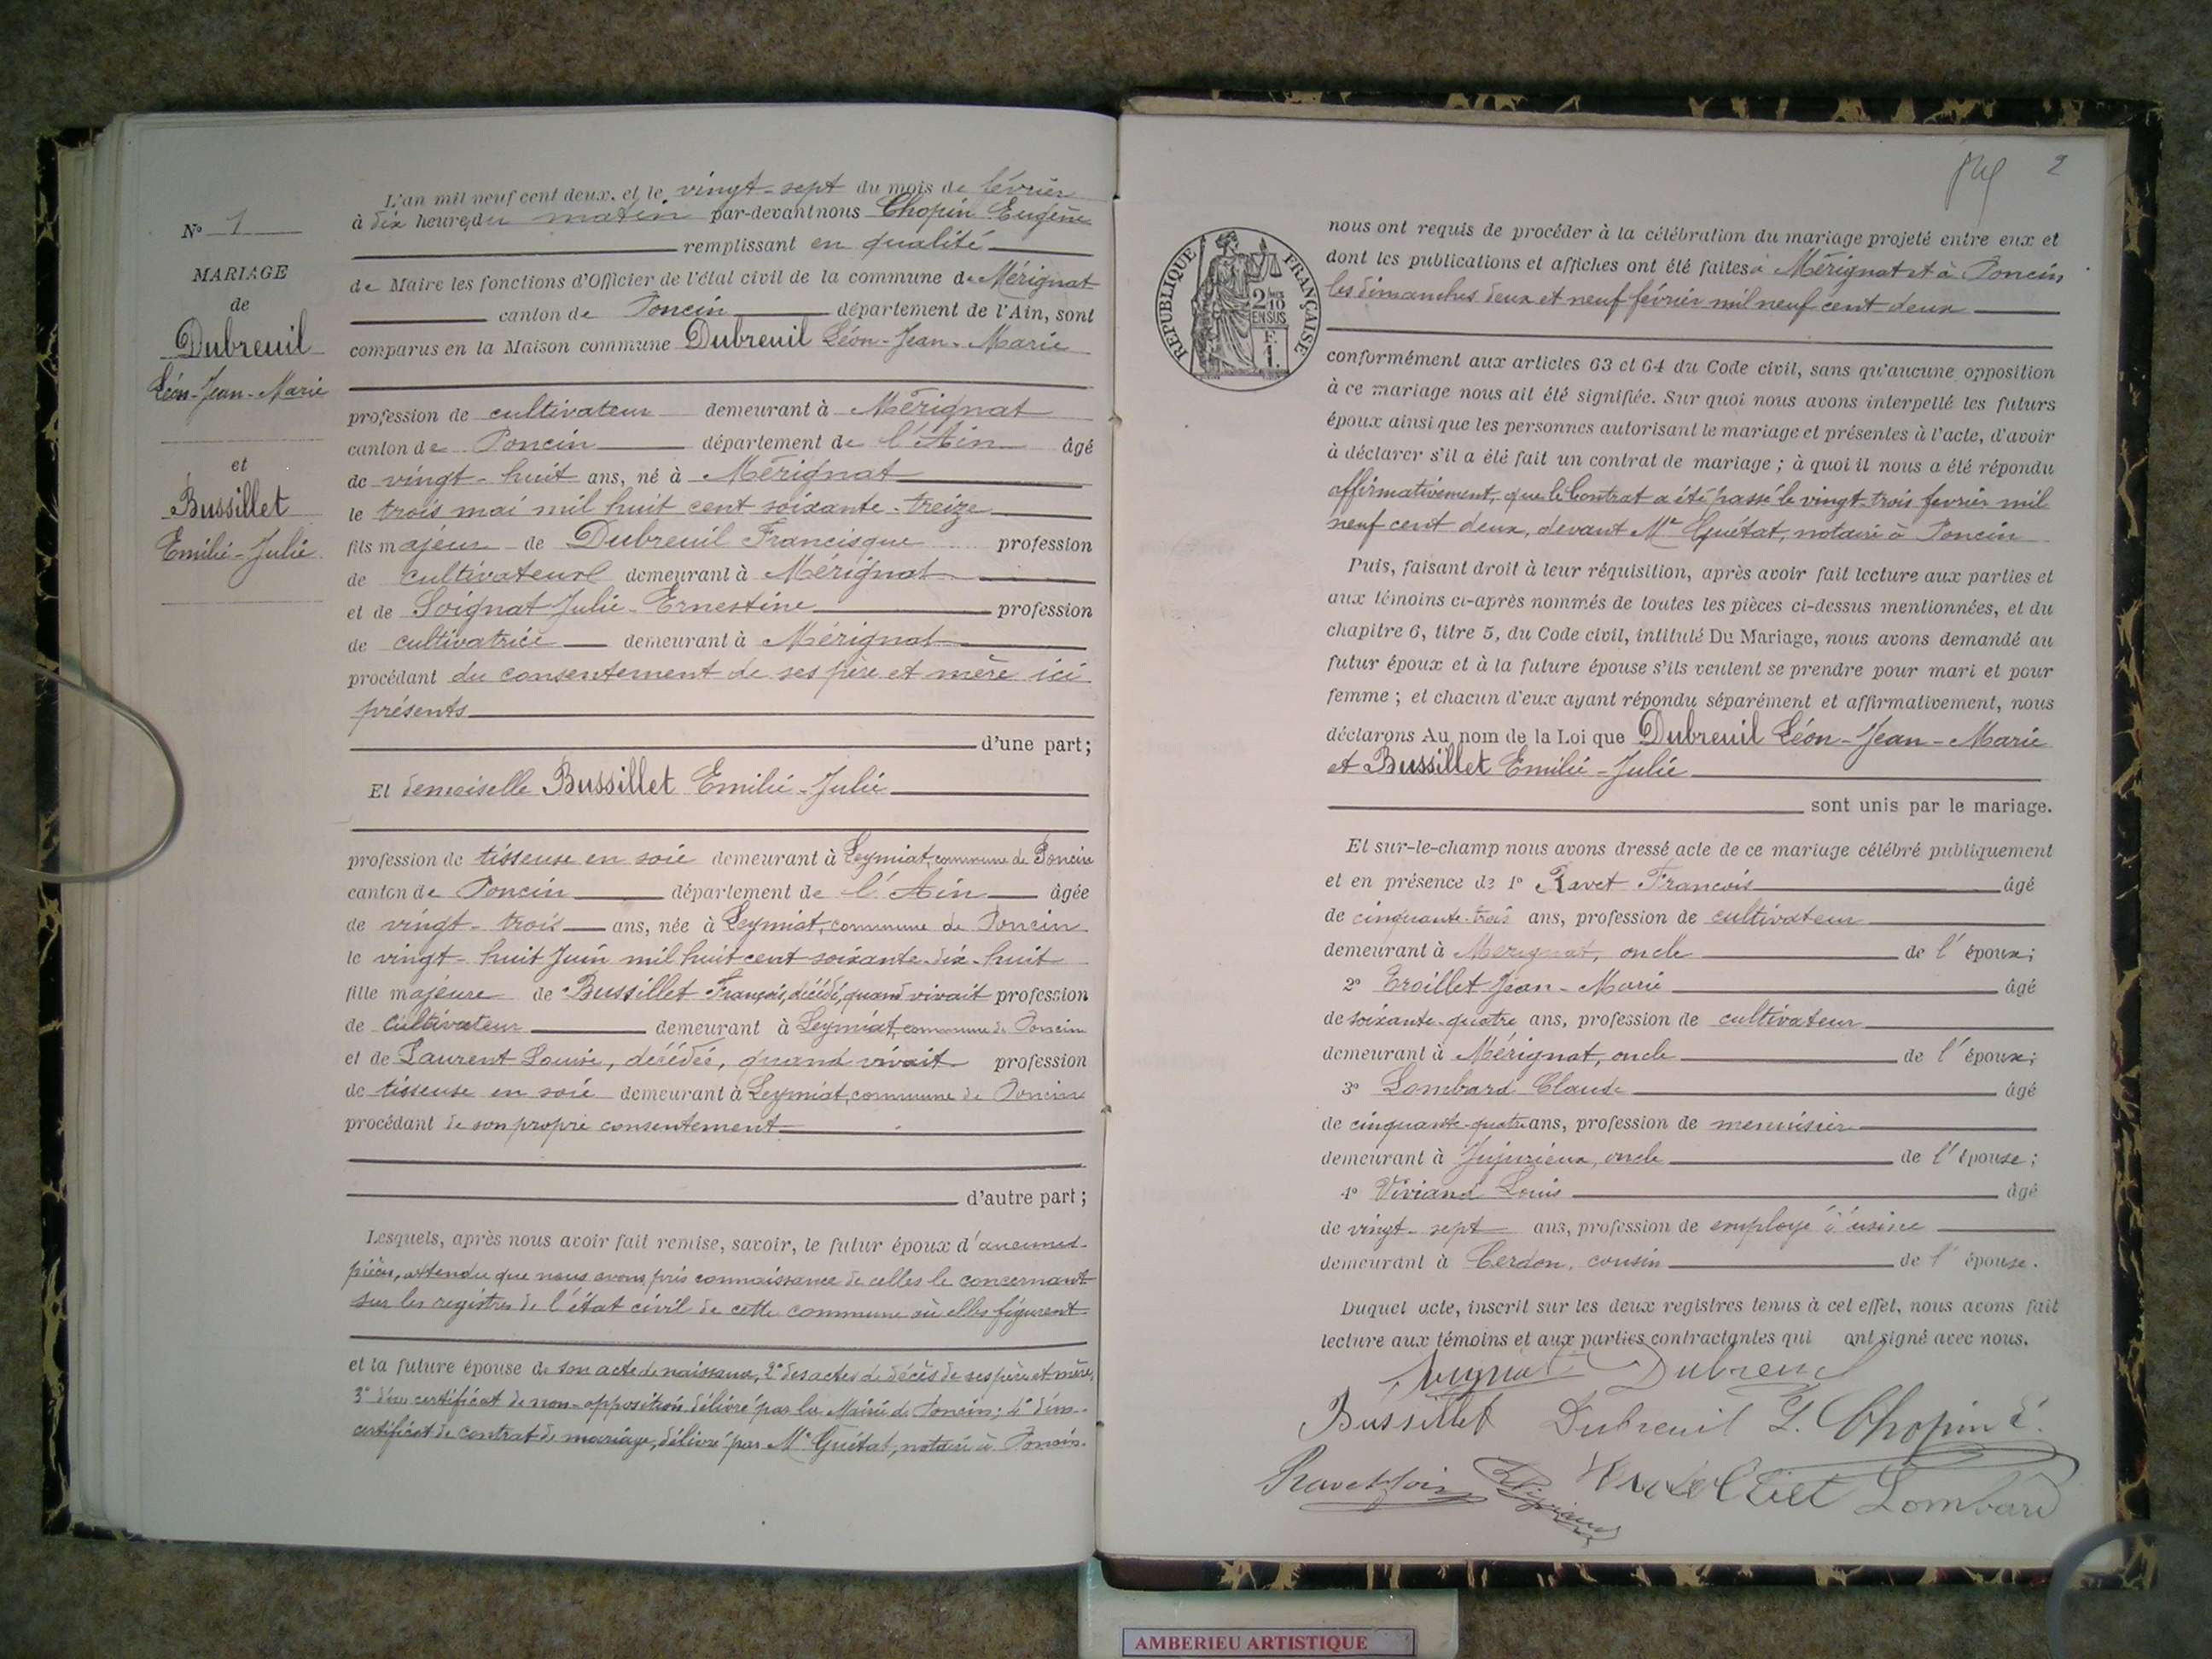 N° 1
MARIAGE
de
Dubreuil
Léon-Jean-Marie
et
Bussillet
Emilie-Julie
L'an mil neuf cent deux, et le vingt-sept du mois de février
à dix heures du matin par-devant nous Chopin Eugène
remplissant en qualité
de Maire les fonctions d'Officier de l'état civil de la commune de Mérignat
canton de Poncin département de l'Ain, sont
comparus en la Maison commune Dubreuil Léon-Jean-Marie
profession de cultivateur demeurant à Mérignat
canton de Poncin département de l'Ain âgé
de vingt-huit ans, né à Mérignat
le trois mai mil huit cent soixante-treize
fils majeur de Dubreuil Francisque profession
de cultivateur demeurant à Mérignat
et de Soignat Julie-Ernestine profession
de cultivatrice demeurant à Mérignat
procédant du consentement de ses père et mère ici
présents
d'une part;
Et demoiselle Bussillet Emilie-Julie
profession de tisseuse en soie demeurant à Leymiat, commune de Poncin
canton de Poncin département de l'Ain âgée
de vingt-trois ans, née à Leymiat, commune de Poncin
le vingt-huit Juin mil huit cent soixante-dix-huit
fille majeure de Bussillet François, décédé, quand vivait profession
de cultivateur demeurant à Leymiat, commune de Poncin
et de Laurent Louise, décédée, quand vivait profession
de tisseuse en soie demeurant à Leymiat, commune de Poncin
procédant de son propre consentement
d'autre part;
Lesquels, après nous avoir fait remise, savoir, le futur époux d'aucunes
pièces, attendu que nous avons pris connaissance de celles le concernant
sur les registres de l'état civil de cette commune où elles figurent
et la future épouse de son acte de naissance, 2° des actes de décès de ses père et mère,
3° d'un certificat de non-opposition délivré par la Mairie de Poncin; 4° d'un
certificat de contrat de mariage, délivré par Me Guétat, notaire à Poncin.
2
REPUBLIQUE FRANÇAISE
2/10 EN SUS
F. 1.
nous ont requis de procéder à la célébration du mariage projeté entre eux et
dont les publications et affiches ont été faites à Mérignat et à Poncin
les dimanches deux et neuf février mil neuf cent deux
conformément aux articles 63 et 64 du Code civil, sans qu'aucune opposition
à ce mariage nous ait été signifiée. Sur quoi nous avons interpellé les futurs
époux ainsi que les personnes autorisant le mariage et présentes à l'acte, d'avoir
à déclarer s'il a été fait un contrat de mariage; à quoi il nous a été répondu
affirmativement, que le Contrat a été passé le vingt-trois fevrier mil
neuf cent deux, devant Me Guétat, notaire à Poncin
Puis, faisant droit à leur réquisition, après avoir fait lecture aux parties et
aux témoins ci-après nommés de toutes les pièces ci-dessus mentionnées, et du
chapitre 6, titre 5, du Code civil, intitulé Du Mariage, nous avons demandé au
futur époux et à la future épouse s'ils veulent se prendre pour mari et pour
femme; et chacun d'eux ayant répondu séparément et affirmativement, nous
déclarons Au nom de la Loi que Dubreuil Léon-Jean-Marie
et Bussillet Emilie-Julie
sont unis par le mariage.
Et sur-le-champ nous avons dressé acte de ce mariage célébré publiquement
et en présence de 1° Ravet François âgé
de cinquante-trois ans, profession de cultivateur
demeurant à Mérignat, oncle de l'époux;
2° Eroillet Jean-Marie âgé
de soixante-quatre ans, profession de cultivateur
demeurant à Mérignat, oncle de l'époux;
3° Lombard Claude âgé
de cinquante-quatre ans, profession de menuisier
demeurant à Jujurieux, oncle de l'épouse;
4° Viviand Louis âgé
de vingt-sept ans, profession de employé d'usine
demeurant à Cerdon, cousin de l'épouse.
Duquel acte, inscrit sur les deux registres tenus à cet effet, nous avons fait
lecture aux témoins et aux parties contractantes qui ont signé avec nous.
Dubreuil
Bussillet Dubreuil L. Chopin E.
Ravet Lombard
AMBERIEU ARTISTIQUE